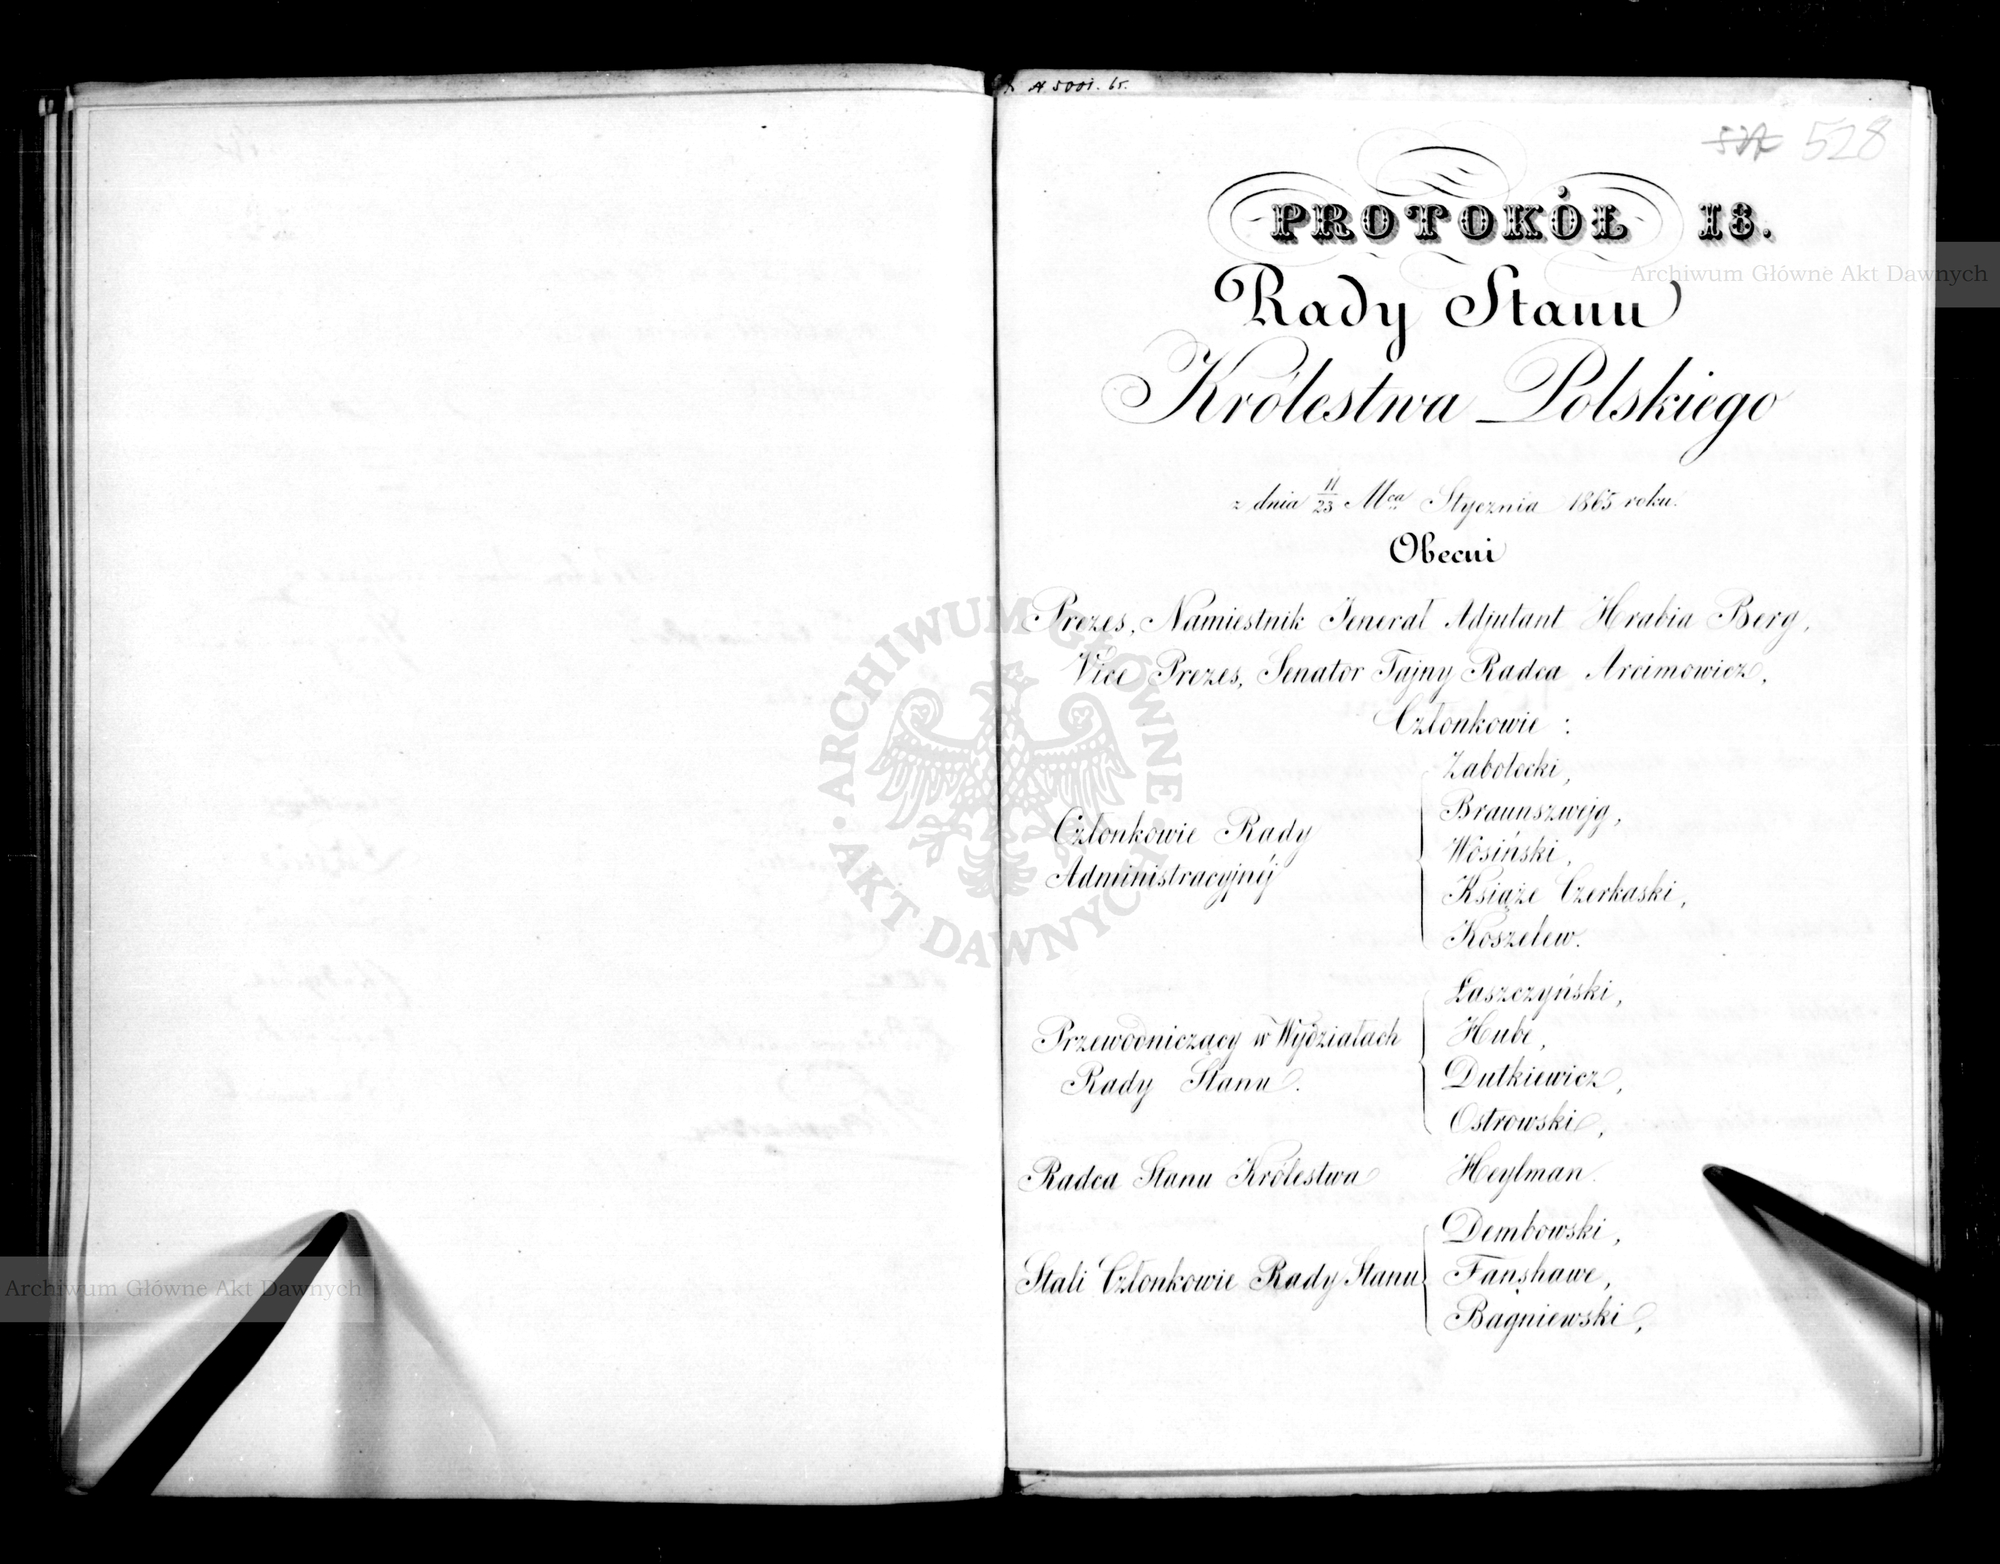 N 5001. 65.
528
PROTOKÓŁ 18.
Rady Stanu
Królestwa Polskiego
z dnia 11/23 Mca Stycznia 1865 roku.
Obecni
Prezes, Namiestnik Jenerał Adjutant Hrabia Berg,
Vice Prezes, Senator Tajny Radca Arcimowicz,
Członkowie :
Członkowie Rady
Administracyjnéj
Zabołocki,
Braunszwejg,
Wosiński,
Książe Czerkaski,
Koszelew.
Przewodniczący w Wydziałach
Rady Stanu.
Łaszczyński,
Hube,
Dutkiewicz,
Ostrowski,
Radca Stanu Królestwa Heylman.
Stali Członkowie Rady Stanu
Dembowski,
Fanshawe,
Bagniewski,
ARCHIWUM GŁÓWNE AKT DAWNYCH
Archiwum Główne Akt Dawnych
Archiwum Główne Akt Dawnych